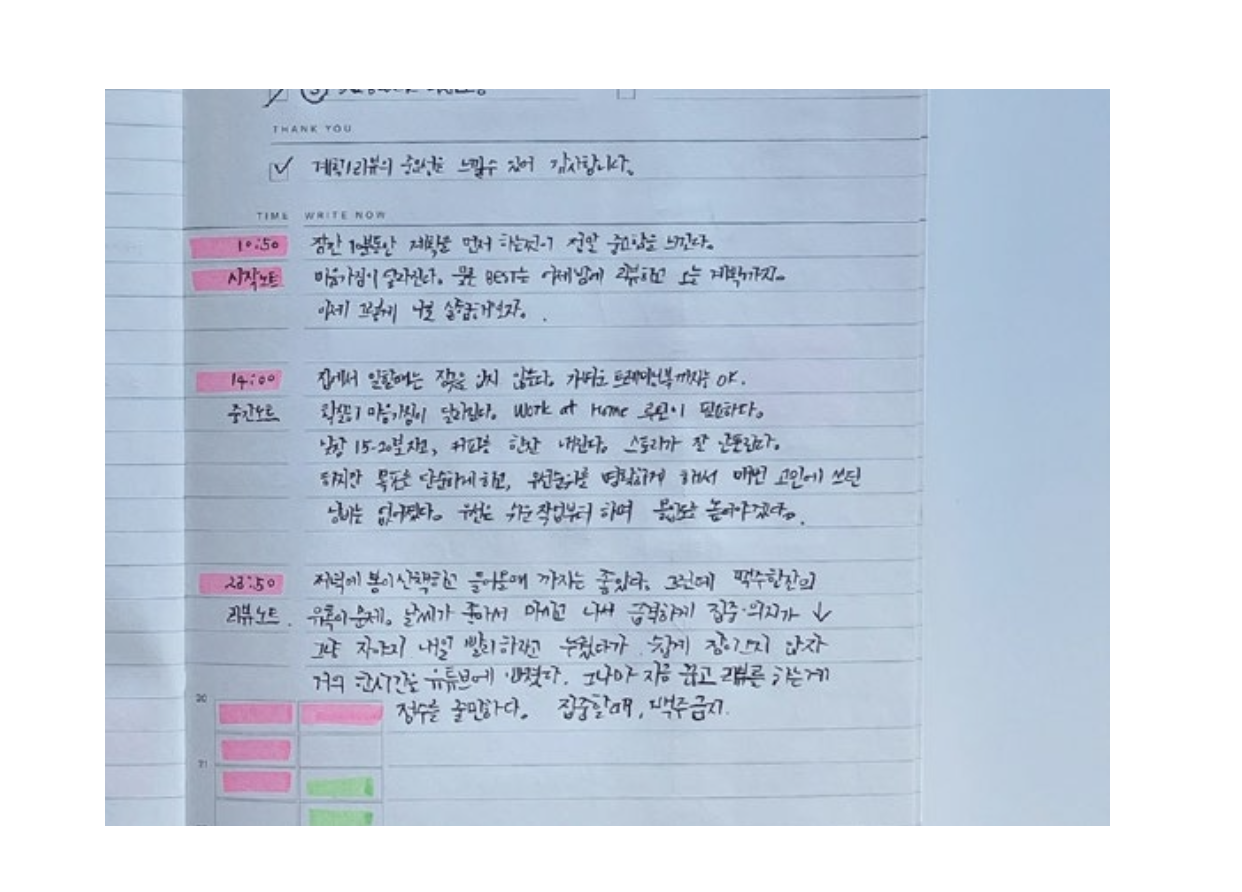 THANK YOU
계획/리뷰의 중요성을 느낄수 있어 감사합니다.
TIME WRITE NOW
10:50 잠깐 1분동안 계획을 먼저 하는것이 정말 중요함을 느낀다.
시작노트 마음가짐이 달라진다. 물론 BEST는 어제밤에 리뷰하고 오늘 계획까지.
이제 그렇게 나를
14:00 집에서 일할때는 잠옷을 입지 않는다. 가벼운 트레이닝복까지는 OK.
중간노트 확실히 마음가짐이 달라진다. Work at Home 루틴이 필요하다.
낮잠 15-20분자고, 커피를 한잔 내린다. 스토리가 잘
하지만 목표를 단순하게하고, 우선순위를 명확하게 해서 매번 고민에 쓰던
낭비는 없어졌다. 우선은 쉬운작업부터 하며 몰입도를 높여야겠다.
23:50 저녁에 봉이산책하고 들어올때 까지는 좋았다. 그런데 맥주한잔의
리뷰노트 유혹이 문제. 날씨가 좋아서 마시고 나서 급격하게 집중·의지가 ↓
그냥 자야지 내일 빨리하라고 누웠다가 쉽게 잠이오지 않자
거의 한시간을 유튜브에 빠졌다. 그나마 지금 끄고 리뷰를 하는게
20 점수를 줄만하다. 집중할때, 맥주금지.
21